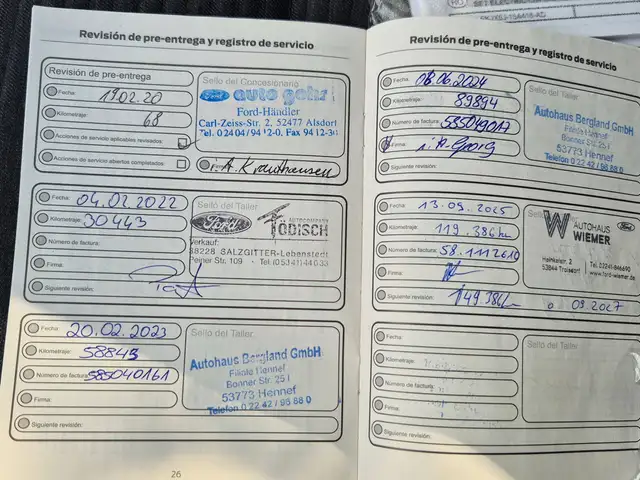 Revisión de pre-entrega y registro de servicio
Revisión de pre-entrega
Fecha: 19.02.20
Kilometraje: 68
Acciones de servicio aplicables revisadas
Acciones de servicio abiertas completadas
Sello del Concesionario
Ford auto gehr!
Ford-Händler
Carl-Zeiss-Str. 2, 52477 Alsdorf
Tel. 02404/94 12-0, Fax 94 12-3
i. A. Krauthausen
Fecha: 04.02.2022
Kilometraje: 30443
Número de factura:
Firma:
Siguiente revisión:
Sello del Taller
Ford
AUTOCOMPANY
TÖDISCH
Verkauf:
38228 SALZGITTER-Lebenstedt
Peiner Str. 109 • Tel (05341) 44033
Fecha: 20.02.2023
Kilometraje: 58843
Número de factura: 585040161
Firma:
Siguiente revisión:
Sello del Taller
Autohaus Bergland GmbH
Filiale Hennef
Bonner Str. 25 l
53773 Hennef
Telefon 0 22 42 / 96 88 0
26
Revisión de pre-entrega y registro de servicio
Fecha: 06.06.2024
Kilometraje: 89894
Número de factura:
Firma: i. A. Georg
Siguiente revisión:
Sello del Taller
Autohaus Bergland GmbH
Filiale Hennef
Bonner Str. 25 l
53773 Hennef
Telefon 0 22 42 / 96 88 0
Fecha: 13.09.2025
Kilometraje: 119.386 km
Número de factura: 58.1112610
Firma:
Siguiente revisión: 149.386 o 09.2027
Sello del Taller
W AUTOHAUS
WIEMER
Ford
Hainkeler. 2
53844 Troisdorf
Tel. 02241-846690
www.ford-wiemer.de
Fecha:
Kilometraje:
Número de factura:
Firma:
Siguiente revisión:
Sello del Taller